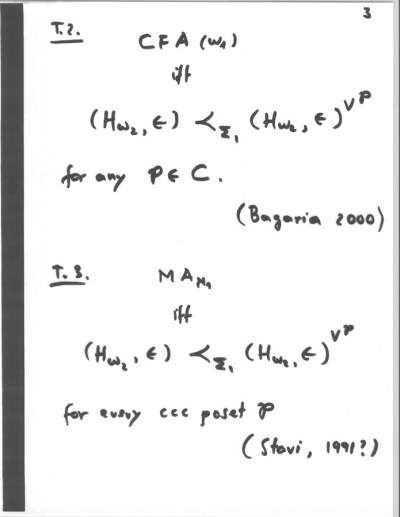 3
T.2.
CFA(ω₁)
iff
(H_ω₂, ∈) ≺_Σ₁ (H_ω₂, ∈)^V^P
for any P ∈ C.
(Bagaria 2000)
T.3.
MA_ℵ₁
iff
(H_ω₂, ∈) ≺_Σ₁ (H_ω₂, ∈)^V^P
for every ccc poset P
(Stavi, 1991?)